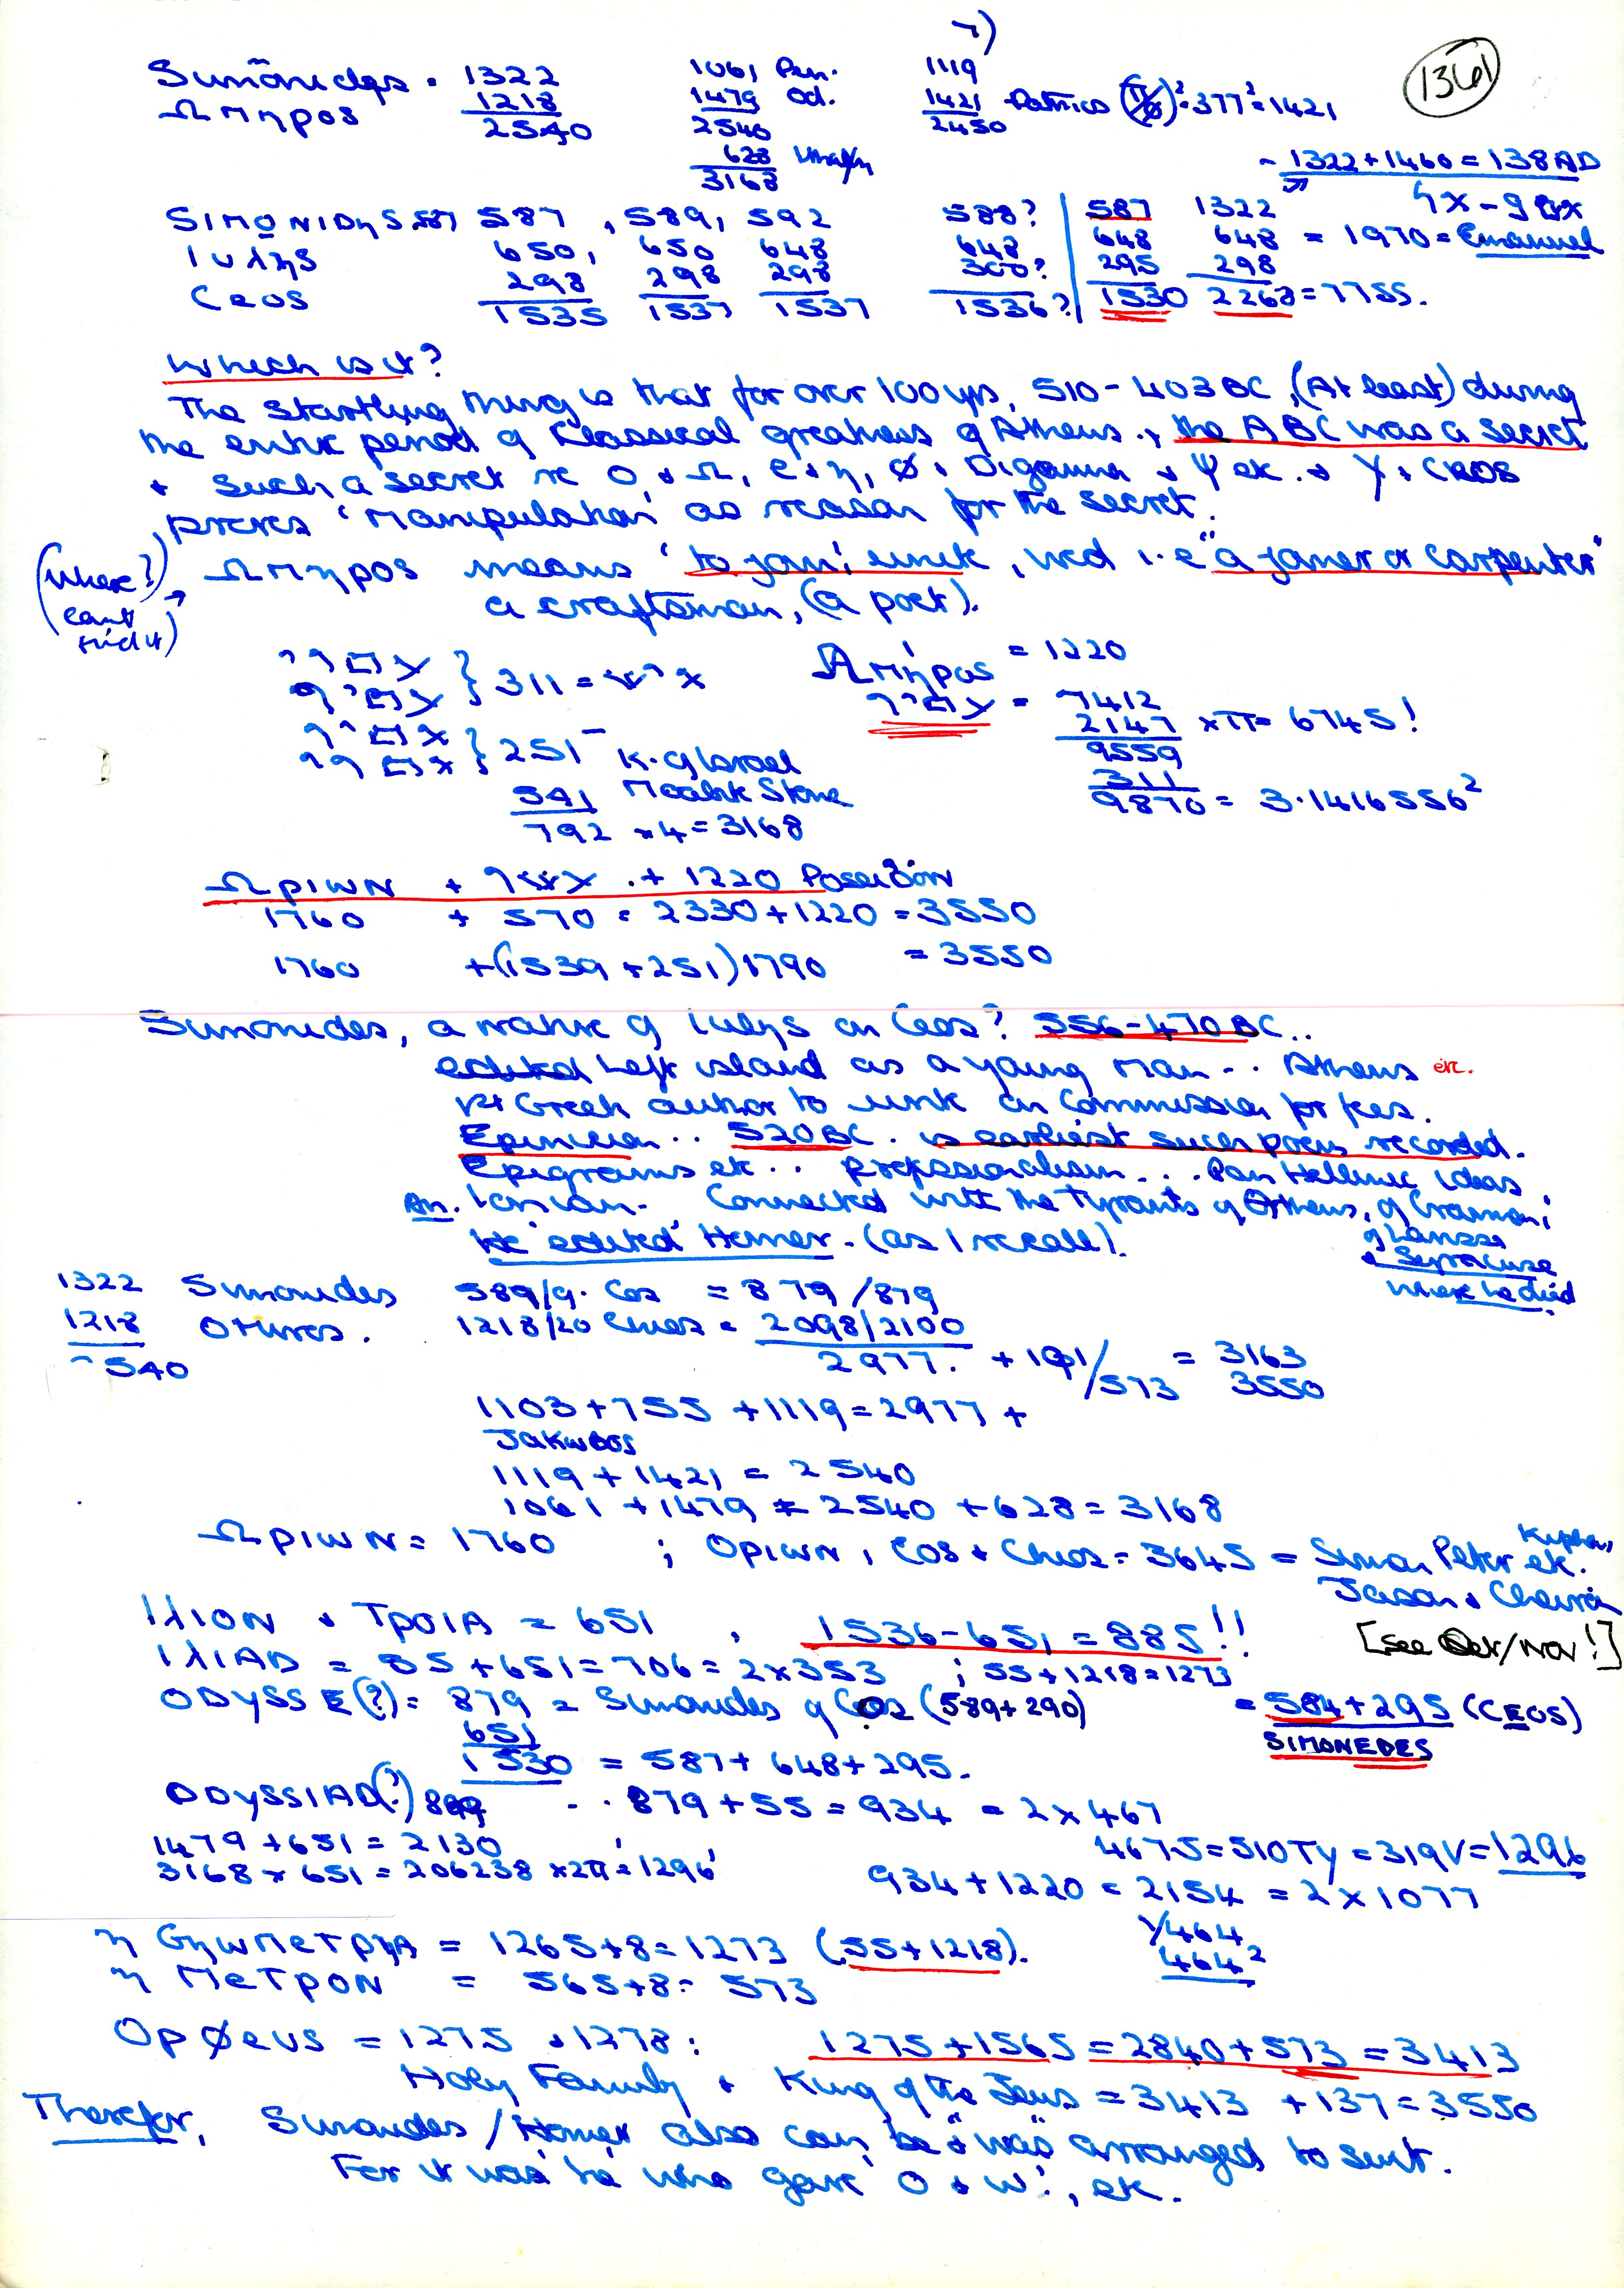 7)
1361
Simōnides . 1322 1061 Pen. 1119
Ωmηρος 1218 1479 Od. 1421 Patrico (π/6)² = 377² = 1421
2540 2540 2450
628
3168
~ 1322 + 1460 = 138 AD
SIMONIDηS 587 587, 589, 592 588? 587 1322
ΙυληS 650, 650 648 648 648 648 = 1970 = Emanuel
Ceos 298 298 298 300? 295 298
1535 1537 1537 1536? 1530 2268 = 7755.
Which is it?
The startling thing is that for over 100 yrs, 510 - 403 BC, (At least) during
the entire period of Classical greatness of Athens., the ABC was a secret
+ such a secret re O, + Ω, e + η, Ø, Digamma + Ψ etc. + Y, CEOS
proves 'manipulation' as reason for the secret.
(Where? cant find it)
Ωmηρος means 'to join', unite, wed i.e "a joiner or carpenter"
a craftsman, (a poet).
} 311 = Ωmηρος = 1220
= 7412
2147 x π = 6745!
} 251 - K. of Israel 9559
541 Moabite Stone 311
792 x 4 = 3168 9870 = 3.1416556²
Ωριων + + 1220 Poseidon
1760 + 570 = 2330 + 1220 = 3550
1760 + (1539 + 251) 1790 = 3550
Simonides, a native of Iulys on Ceos? 556 - 470 BC..
Left island as a young man .. Athens etc.
1st Greek author to work on Commission for fees.
Epinician .. 520 BC. is earliest such poem recorded.
Epigrams etc .. professionalism ... Pan Hellenic ideas,
An. Ionian. Connected with the Tyrants of Athens, of Crannon,
of Larissa
He 'edited' Homer. (as I recall).
+ Syracuse
where he died
1322 Simonides 589/9. Cos = 879/879
1218 Omeros. 1218/20 Chios = 2098/2100
2540 2977. + 191/573 = 3163
3550
1103 + 755 + 1119 = 2977 +
Jakwbos
1119 + 1421 = 2540
1061 + 1479 = 2540 + 628 = 3168
Ωριων = 1760 ; Oριων, Cos + Chios = 3645 = Simon Peter etc.
Jason + Cheiron
ΙλιΟΝ + ΤροΙΑ = 651 , 1536 - 651 = 885!!
[see Oct/Nov!]
ΙλιΑD = 55 + 651 = 706 = 2x353 ; 55 + 1218 = 1273
ODYSSE(?) = 879 = Simonides of Cos (589 + 290) = 584 + 295 (CEOS)
651 SIMONEDES
1530 = 587 + 648 + 295.
ODYSSIAD(?) .. 879 + 55 = 934 = 2 x 467
1479 + 651 = 2130
4675 = 510 Ty = 319V = 1296
3168 x 651 = 206238 x 2π = 1296'
934 + 1220 = 2154 = 2 x 1077
1/464
464²
η GηωmeτρηΑ = 1265 + 8 = 1273 (55 + 1218).
η meτροΝ = 565 + 8 = 573
OρØeus = 1275 + 1278: 1275 + 1565 = 2840 + 573 = 3413
Holy Family + King of the Jews = 3413 + 137 = 3550
Therefor, Simonides/Homer also can be + "was" arranged to suit.
For it was 'he' who gave 'O + ω', etc.